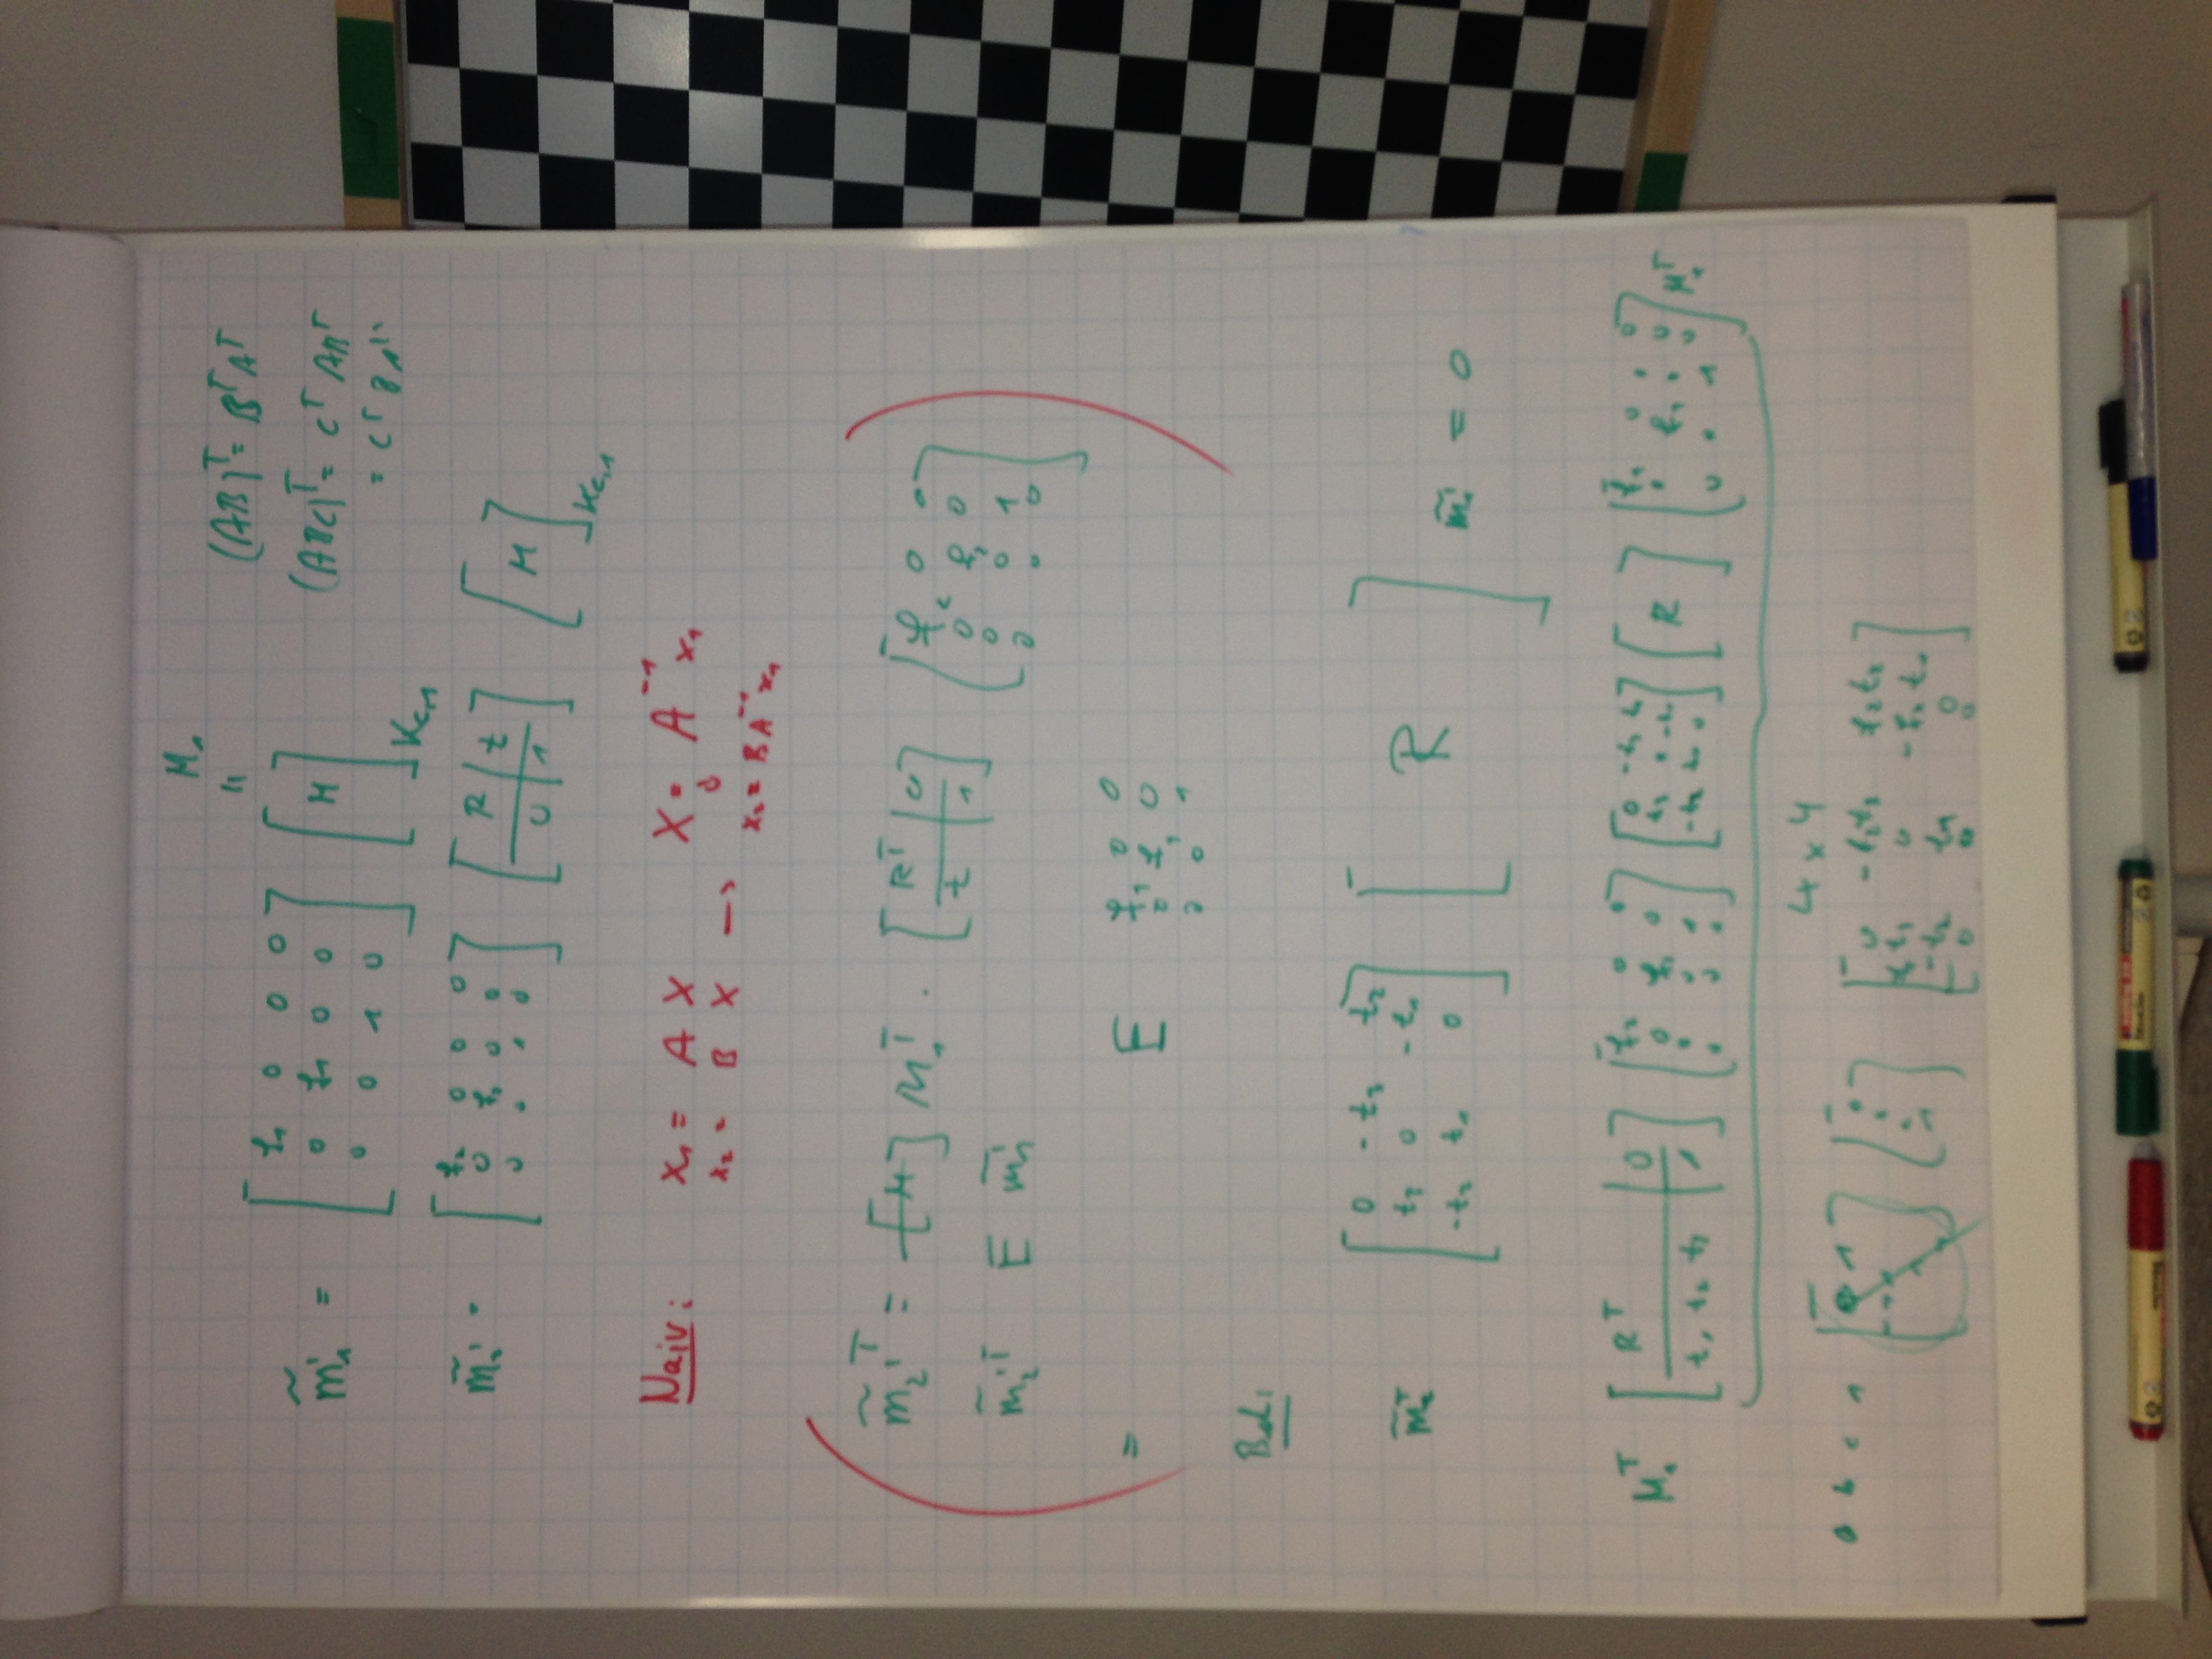 M₁
"
m̃₁' = [ f₁ 0 0 0 ; 0 f₁ 0 0 ; 0 0 1 0 ] [ M ]_{Kc,1}
(AB)ᵀ = BᵀAᵀ
(ABC)ᵀ = Cᵀ ABᵀ
= Cᵀ B
m̃₂' = [ f₂ 0 0 0 ; 0 f₂ 0 0 ; 0 0 1 0 ] [ R | t ; 0 | 1 ] [ M ]_{Kc,1}
Naiv: x₁ = A X X = A⁻¹ x₁
x₂ = B X → x₂ = B A⁻¹ x₁
m̃₂'ᵀ = [M] M₁ᵀ · [ Rᵀ | 0 ; t | 1 ] [ f₂ 0 0 ; 0 f₂ 0 ; 0 0 1 ; 0 0 0 ]
m̃₂'ᵀ E m̃₁'
= E f₁ 0 0 ; 0 f₁ 0 ; 0 0 1
m̃₂ᵀ [ 0 -t₃ t₂ ; t₃ 0 -t₁ ; -t₂ t₁ 0 ] [ R ] m̃₁' = 0
M₁ᵀ [ Rᵀ | 0 ; t₁ t₂ t₃ | 1 ] [ f₂ 0 0 ; 0 f₂ 0 ; 0 0 1 ; 0 0 0 ] [ 0 -t₃ t₂ ; t₃ 0 -t₁ ; -t₂ t₁ 0 ] [ R ] [ f₁ 0 0 0 ; 0 f₁ 0 0 ; 0 0 1 0 ] M₁ᵀ
4 x 4
a b c 1 [ 0 -f₂t₃ f₂t₂ ; f₂t₃ 0 -f₂t₁ ; -t₂ t₁ 0 ; 0 0 0 ]